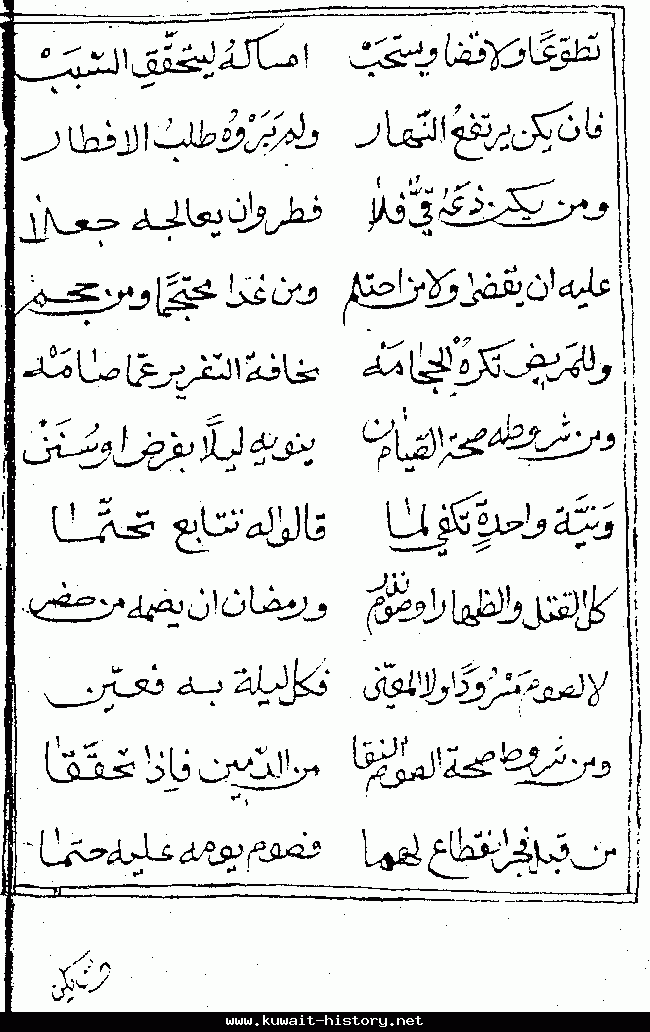 تطوّعًا ولا قضا ويستحبْ امساكهُ ليتحقّقِ السّببْ
فان يكن يرتفعُ النّهار ولم يَرَوْهُ طلبُ الافطار
ومن يكن ذرعَهُ قيٌّ فلا فطر وان يعالجه جعلا
عليه ان يقضى ولا من احتلم ومن غدا محتجمًا ومن حجم
وللمريض تكرهُ الحجامَه مخافة التغرير عمّا صامَهْ
ومن شروطه صحة الصيام ان ينويه ليلًا بفرض او سُنَنْ
ونيَّة واحدةٍ تكفي لما قالوا له تتابع تحتّما
كالقتل والظهار او صوم نذر ورمضان ان يصمه من حضر
لا لصوم مَسْرُودًا ولا المعيّن فكل ليلة به فعيّن
ومن شروط صحة الصوم النقا من الدّمين فاِذا تحقَّقا
من قبل فجر انقطاع لهما فصوم يومه عليه حتما
www.kuwait-history.net